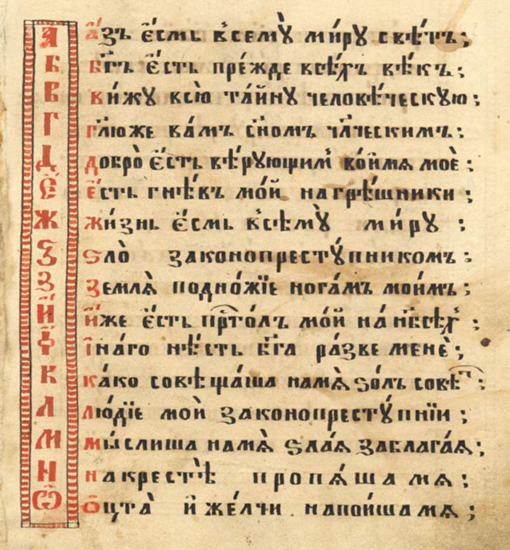 А
Б
В
Г
Д
Є
Ж
Ѕ
З
И
І
К
Л
М
Н
Ѡ
а҆зъ є҆смь всемꙋ̀ ми́рꙋ свѣ́тъ;
бг҃ъ є҆сть пре́жде всѣ́хъ вѣ́къ;
ви́жꙋ всю̀ та́йнꙋ человѣ́ческꙋю;
гл҃юже ва́мъ сн҃омъ чл҃ческимъ;
добро̀ є҆сть вѣ́рꙋющимъ во и҆́мѧ моѐ
є҆сть гнѣ́въ мо́й на грѣ́шники;
жи́знь є҆смь всемꙋ̀ ми́рꙋ;
ѕло̀ законопрестꙋ́пникомъ;
землѧ̀ подно́жїе нога́мъ мои́мъ;
и҆́же є҆сть прⷭ҇то́лъ мо́й на нб҃сѣ́хъ;
і҆на́го нѣ́сть бг҃а ра́зве менѐ;
ка́ко совѣща́ша на мѧ̀ ѕо́лъ совѣ́тъ;
лю́дїе мои̑ законопрестꙋ́пнїи;
мы́слиша на мѧ̀ ѕла́ѧ за блага́ѧ;
на крестѣ̀ пропѧ́ша мѧ;
о҆́цта̀ и҆ же́лчи напои́ша мѧ;